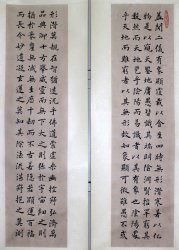 蓋聞二儀有象顯覆載以含生四時無形潛寒暑以化
物是以窺天鑒地庸愚皆識其端明陰洞陽賢哲罕窮其
數然而天地苞乎陰陽而易識者以其有象也陰陽處
乎天地而難窮者以其無形也故知象顯可徵雖愚不惑
形潛莫覩在智猶迷況乎佛道崇虛乘幽控寂弘濟萬
品典御十方舉威靈而無上抑神力而無下大之則彌於宇宙細之則
攝於毫釐無滅無生歷千劫而不古若隱若顯運百福
而長今妙道凝玄遵之莫知其際法流湛寂挹之莫測